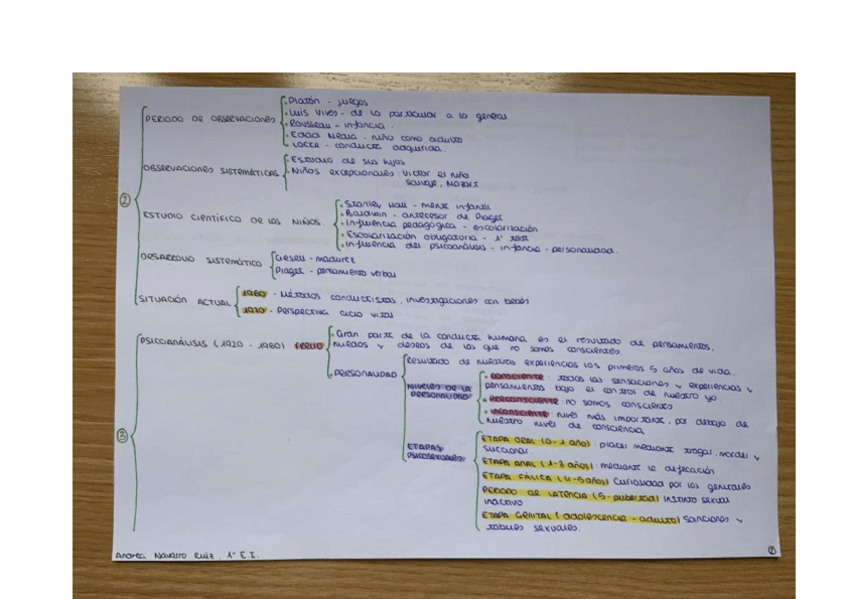 ②
PERIODO DE OBSERVACIONES
· Platón - juegos
· Luis Vives - de lo particular a lo general
· Rousseau - infancia.
· Edad Media - niño como adulto
· Locke - conducta adquirida.
OBSERVACIONES SISTEMÁTICAS
· Estudio de sus hijos
· Niños excepcionales: Victor el niño
salvaje, Mozart
ESTUDIO CIENTÍFICO DE LOS NIÑOS.
· Stanley Hall - mente infantil
· Baldwin - antecesor de Piaget
· Influencia pedagógica - escolarización
· Escolarización obligatoria - 1º test
· Influencia del psicoanálisis - infancia - personalidad.
DESARROLLO SISTEMÁTICO
Gesell - madurez
Piaget - pensamiento verbal
SITUACIÓN ACTUAL
1960 - Métodos conductistas, investigaciones con bebés
1970 - Perspectiva ciclo vital
③
PSICOANÁLISIS (1920 - 1980) FREUD
· Gran parte de la conducta humana es el resultado de pensamientos,
miedos y deseos de los que no somos conscientes.
· PERSONALIDAD
Resultado de nuestras experiencias los primeros 5 años de vida.
NIVELES DE LA
PERSONALIDAD
· CONSCIENTE: todas las sensaciones y experiencias y
pensamientos bajo el control de nuestro yo
· PRECONSCIENTE: no somos conscientes
· INCONSCIENTE: nivel más importante, por debajo de
nuestro nivel de consciencia.
ETAPAS
PSICOSEXUALES
ETAPA ORAL (0-1 año): placer mediante tragar, morder y
succionar.
ETAPA ANAL (1-3 años): mediante la defecación
ETAPA FÁLICA (4-5 años) Curiosidad por los genitales
PERIODO DE LATENCIA (5-pubertad) Instinto sexual
inactivo
ETAPA GENITAL (adolescencia - adulto) Sanciones y
tabues sexuales.
Andrea Navarro Ruiz. 1º E.I.